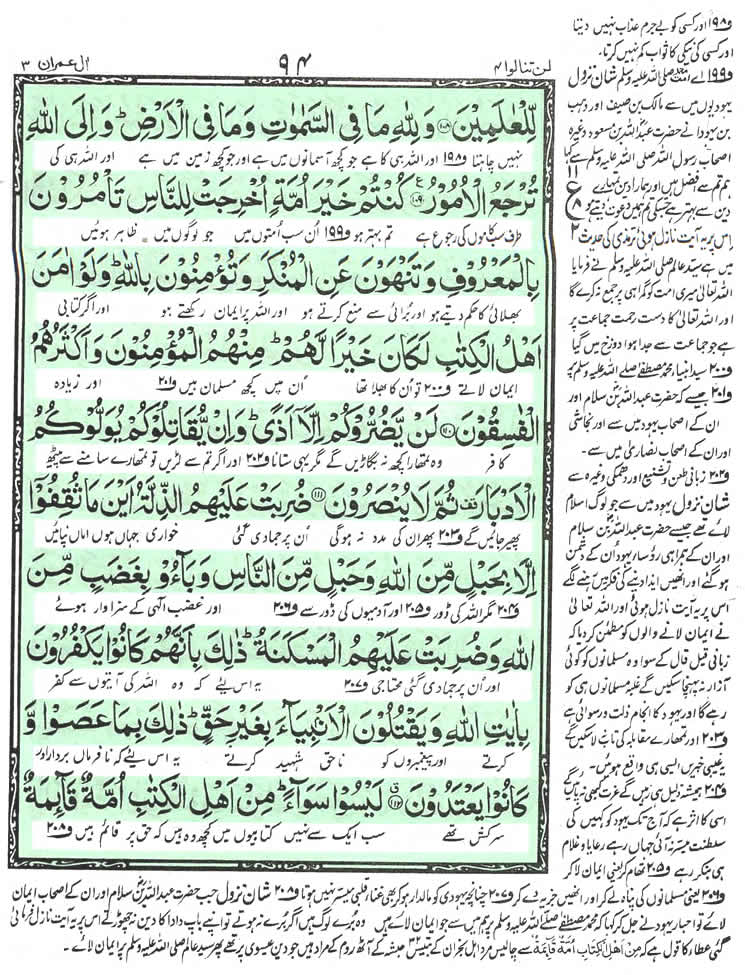 لن تنالوا ۴
۹۴
اٰل عمران ۳
لِّلْعٰلَمِیْنَ ﴿۱۰۸﴾ وَلِلّٰهِ مَا فِی السَّمٰوٰتِ وَمَا فِی الْاَرْضِ ؕ وَاِلَی اللّٰهِ
نہیں چاہتا ف۱۹۸ اور اللہ ہی کا ہے جو کچھ آسمانوں میں ہے اور جو کچھ زمین میں ہے اور اللہ ہی کی
تُرْجَعُ الْاُمُوْرُ ﴿۱۰۹﴾ كُنْتُمْ خَیْرَ اُمَّةٍ اُخْرِجَتْ لِلنَّاسِ تَاْمُرُوْنَ
طرف سب کاموں کی رجوع ہے تم بہتر ہو ف۱۹۹ اُن سب امتوں میں جو لوگوں میں ظاہر ہوئیں
بِالْمَعْرُوْفِ وَتَنْهَوْنَ عَنِ الْمُنْكَرِ وَتُؤْمِنُوْنَ بِاللّٰهِ ؕ وَلَوْ اٰمَنَ
بھلائی کا حکم دیتے ہو اور بُرائی سے منع کرتے ہو اور اللہ پر ایمان رکھتے ہو اور اگر کتابی
اَهْلُ الْكِتٰبِ لَكَانَ خَیْرًا لَّهُمْ ؕ مِنْهُمُ الْمُؤْمِنُوْنَ وَاَكْثَرُهُمُ
ایمان لاتے ف۲۰۰ تو اُن کا بھلا تھا اُن میں کچھ مسلمان ہیں ف۲۰۱ اور زیادہ
الْفٰسِقُوْنَ ﴿۱۱۰﴾ لَنْ یَّضُرُّوْكُمْ اِلَّاۤ اَذًی ؕ وَاِنْ یُّقَاتِلُوْكُمْ یُوَلُّوْكُمُ
کافر وہ تمھارا کچھ نہ بگاڑیں گے مگر یہی ستانا ف۲۰۲ اور اگر تم سے لڑیں تو تمھارے سامنے سے پیٹھ
الْاَدْبَارَ ثُمَّ لَا یُنْصَرُوْنَ ﴿۱۱۱﴾ ضُرِبَتْ عَلَیْهِمُ الذِّلَّةُ اَیْنَ مَا ثُقِفُوْۤا
پھیر جائیں گے ف۲۰۳ پھر ان کی مدد نہ ہوگی اُن پر جمادی گئی خواری جہاں ہوں اماں نہ پائیں
اِلَّا بِحَبْلٍ مِّنَ اللّٰهِ وَحَبْلٍ مِّنَ النَّاسِ وَبَآءُوْ بِغَضَبٍ مِّنَ
ف۲۰۴ مگر اللہ کی ڈور ف۲۰۵ اور آدمیوں کی ڈور سے ف۲۰۶ اور غضب الٰہی کے سزاوار ہوئے
اللّٰهِ وَضُرِبَتْ عَلَیْهِمُ الْمَسْكَنَةُ ؕ ذٰلِكَ بِاَنَّهُمْ كَانُوْا یَكْفُرُوْنَ
اور اُن پر جمادی گئی محتاجی ف۲۰۷ یہ اس لیے کہ وہ اللہ کی آیتوں سے کفر
بِاٰیٰتِ اللّٰهِ وَیَقْتُلُوْنَ الْاَنْۢبِیَآءَ بِغَیْرِ حَقٍّ ؕ ذٰلِكَ بِمَا عَصَوْا وَّ
کرتے اور پیغمبروں کو ناحق شہید کرتے یہ اس لیے کہ نافرماں بردار اور
كَانُوْا یَعْتَدُوْنَ ﴿۱۱۲﴾ لَیْسُوْا سَوَآءً ؕ مِنْ اَهْلِ الْكِتٰبِ اُمَّةٌ قَآىِٕمَةٌ
سرکش تھے سب ایک سے نہیں کتابیوں میں کچھ وہ ہیں کہ حق پر قائم ہیں ف۲۰۸
ف۱۹۸ اور کسی کو بے جرم عذاب نہیں دیتا
اور کسی کی نیکی کا ثواب کم نہیں کرتا۔
ف۱۹۹ اے امت صلی اللہ علیہ وسلم شان نزول
یہودیوں میں سے مالک بن صیف اور وہب
بن یہودا نے حضرت عبداللہ بن مسعود وغیرہ
اصحاب رسول اللہ صلی اللہ علیہ وسلم سے کہا
ہم تم سے افضل ہیں اور ہمارا دین تمہارے
دین سے بہتر ہے جسکی تم ہمیں دعوت دیتے ہو
اس پر یہ آیت نازل ہوئی ترمذی کی حدیث
میں ہے سید عالم صلی اللہ علیہ وسلم نے فرمایا
اللہ تعالیٰ میری امت کو گمراہی پر جمع نہ کرے گا
اور اللہ تعالیٰ کا دست رحمت جماعت پر
ہے جو جماعت سے جدا ہوا دوزخ میں گیا
ف۲۰۰ سید انبیاء محمد مصطفیٰ صلے اللہ علیہ وسلم پر
ف۲۰۱ جیسے کہ حضرت عبداللہ بن سلام اور
ان کے اصحاب یہود میں سے اور نجاشی
اور ان کے اصحاب نصاریٰ میں سے۔
ف۲۰۲ زبانی طعن و تشنیع اور دھمکی وغیرہ سے
شان نزول یہود میں سے جو لوگ اسلام
لائے تھے جیسے حضرت عبداللہ بن سلام
اور ان کے ہمراہی رؤسار یہود اُن کے دشمن
ہوگئے اور انھیں ایذا دینے کی فکر میں رہنے لگے
اس پر یہ آیت نازل ہوئی اور اللہ تعالیٰ
نے ایمان لانے والوں کو مطمئن کردیا کہ
زبانی قیل قال کے سوا وہ مسلمانوں کو کوئی
آزار نہ پہنچا سکیں گے غلبہ مسلمانوں ہی کو
رہے گا اور یہود کا انجام ذلت و رسوائی ہے
ف۲۰۳ اور تمھارے مقابلہ کی تاب نہ لاسکیں گے
یہ غیبی خبریں ایسی ہی واقع ہوئیں۔
ف۲۰۴ ہمیشہ ذلیل ہی رہیں گے عزت کبھی نہ پائیں گے
اسی کا اثر ہے کہ آج تک یہود کو کہیں کی
سلطنت میسر نہ آئی جہاں رہے رعایا و غلام
ہی بنکر رہے ف۲۰۵ تھام کر یعنی ایمان لا کر
ف۲۰۶ یعنی مسلمانوں کی پناہ لے کر اور انھیں جزیہ دے کر ف۲۰۷ چنانچہ یہودی کو مالدار ہو کر بھی غناء قلبی میسر نہیں ہوتا ف۲۰۸ شان نزول جب حضرت عبداللہ بن سلام اور ان کے اصحاب ایمان
لائے تو احبار یہود نے جل کر کہا کہ محمد مصطفیٰ صلے اللہ علیہ وسلم پر ہم میں سے جو ایمان لائے ہیں وہ بُرے لوگ ہیں اگر بُرے نہ ہوتے تو اپنے باپ دادا کا دین نہ چھوڑتے اس پر یہ آیت نازل فرمائی
گئی عطا کا قول ہے کہ مِنْ اَهْلِ الْكِتٰبِ اُمَّةٌ قَآىِٕمَةٌ سے چالیس مرد اہل نجران کے بتیس حبشہ کے آٹھ روم کے مراد ہیں جو دین عیسوی پر تھے پھر سید عالم صلی اللہ علیہ وسلم پر ایمان لائے۔